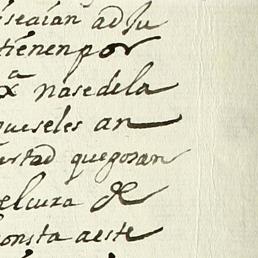 seaian adsu
tienen por
nasedela
queseles an
ertad quegosan
elvira de
onsta aeste